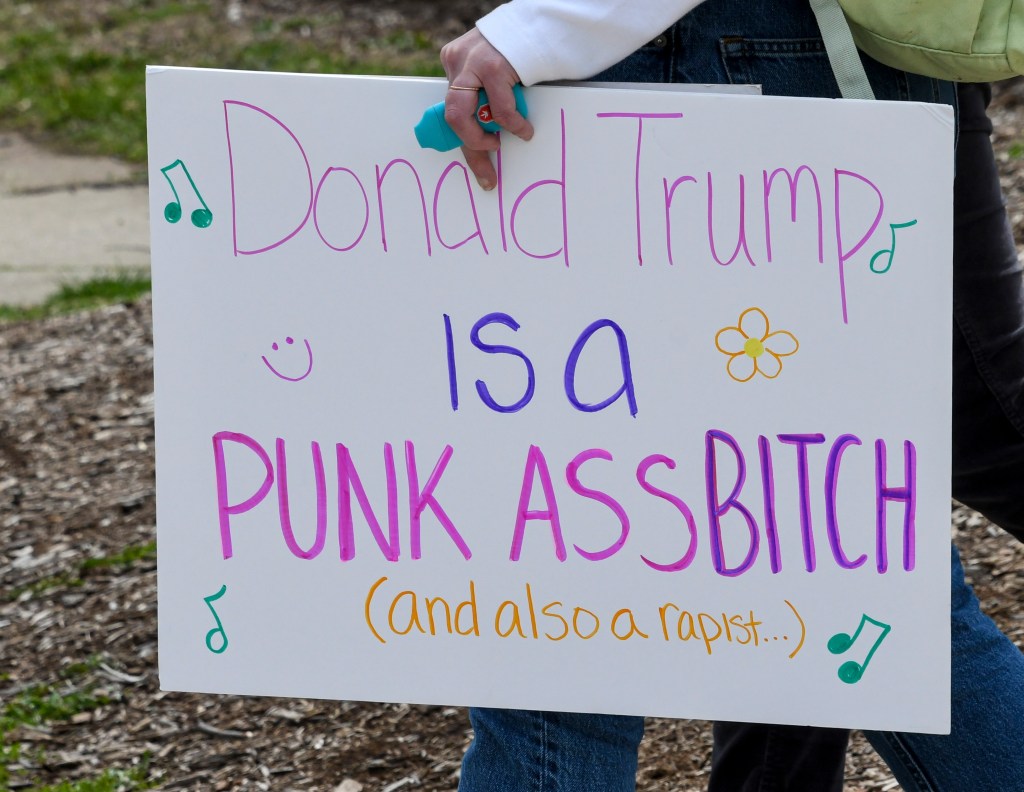 Donald Trump
IS a
PUNK ASS BITCH
(and also a rapist...)